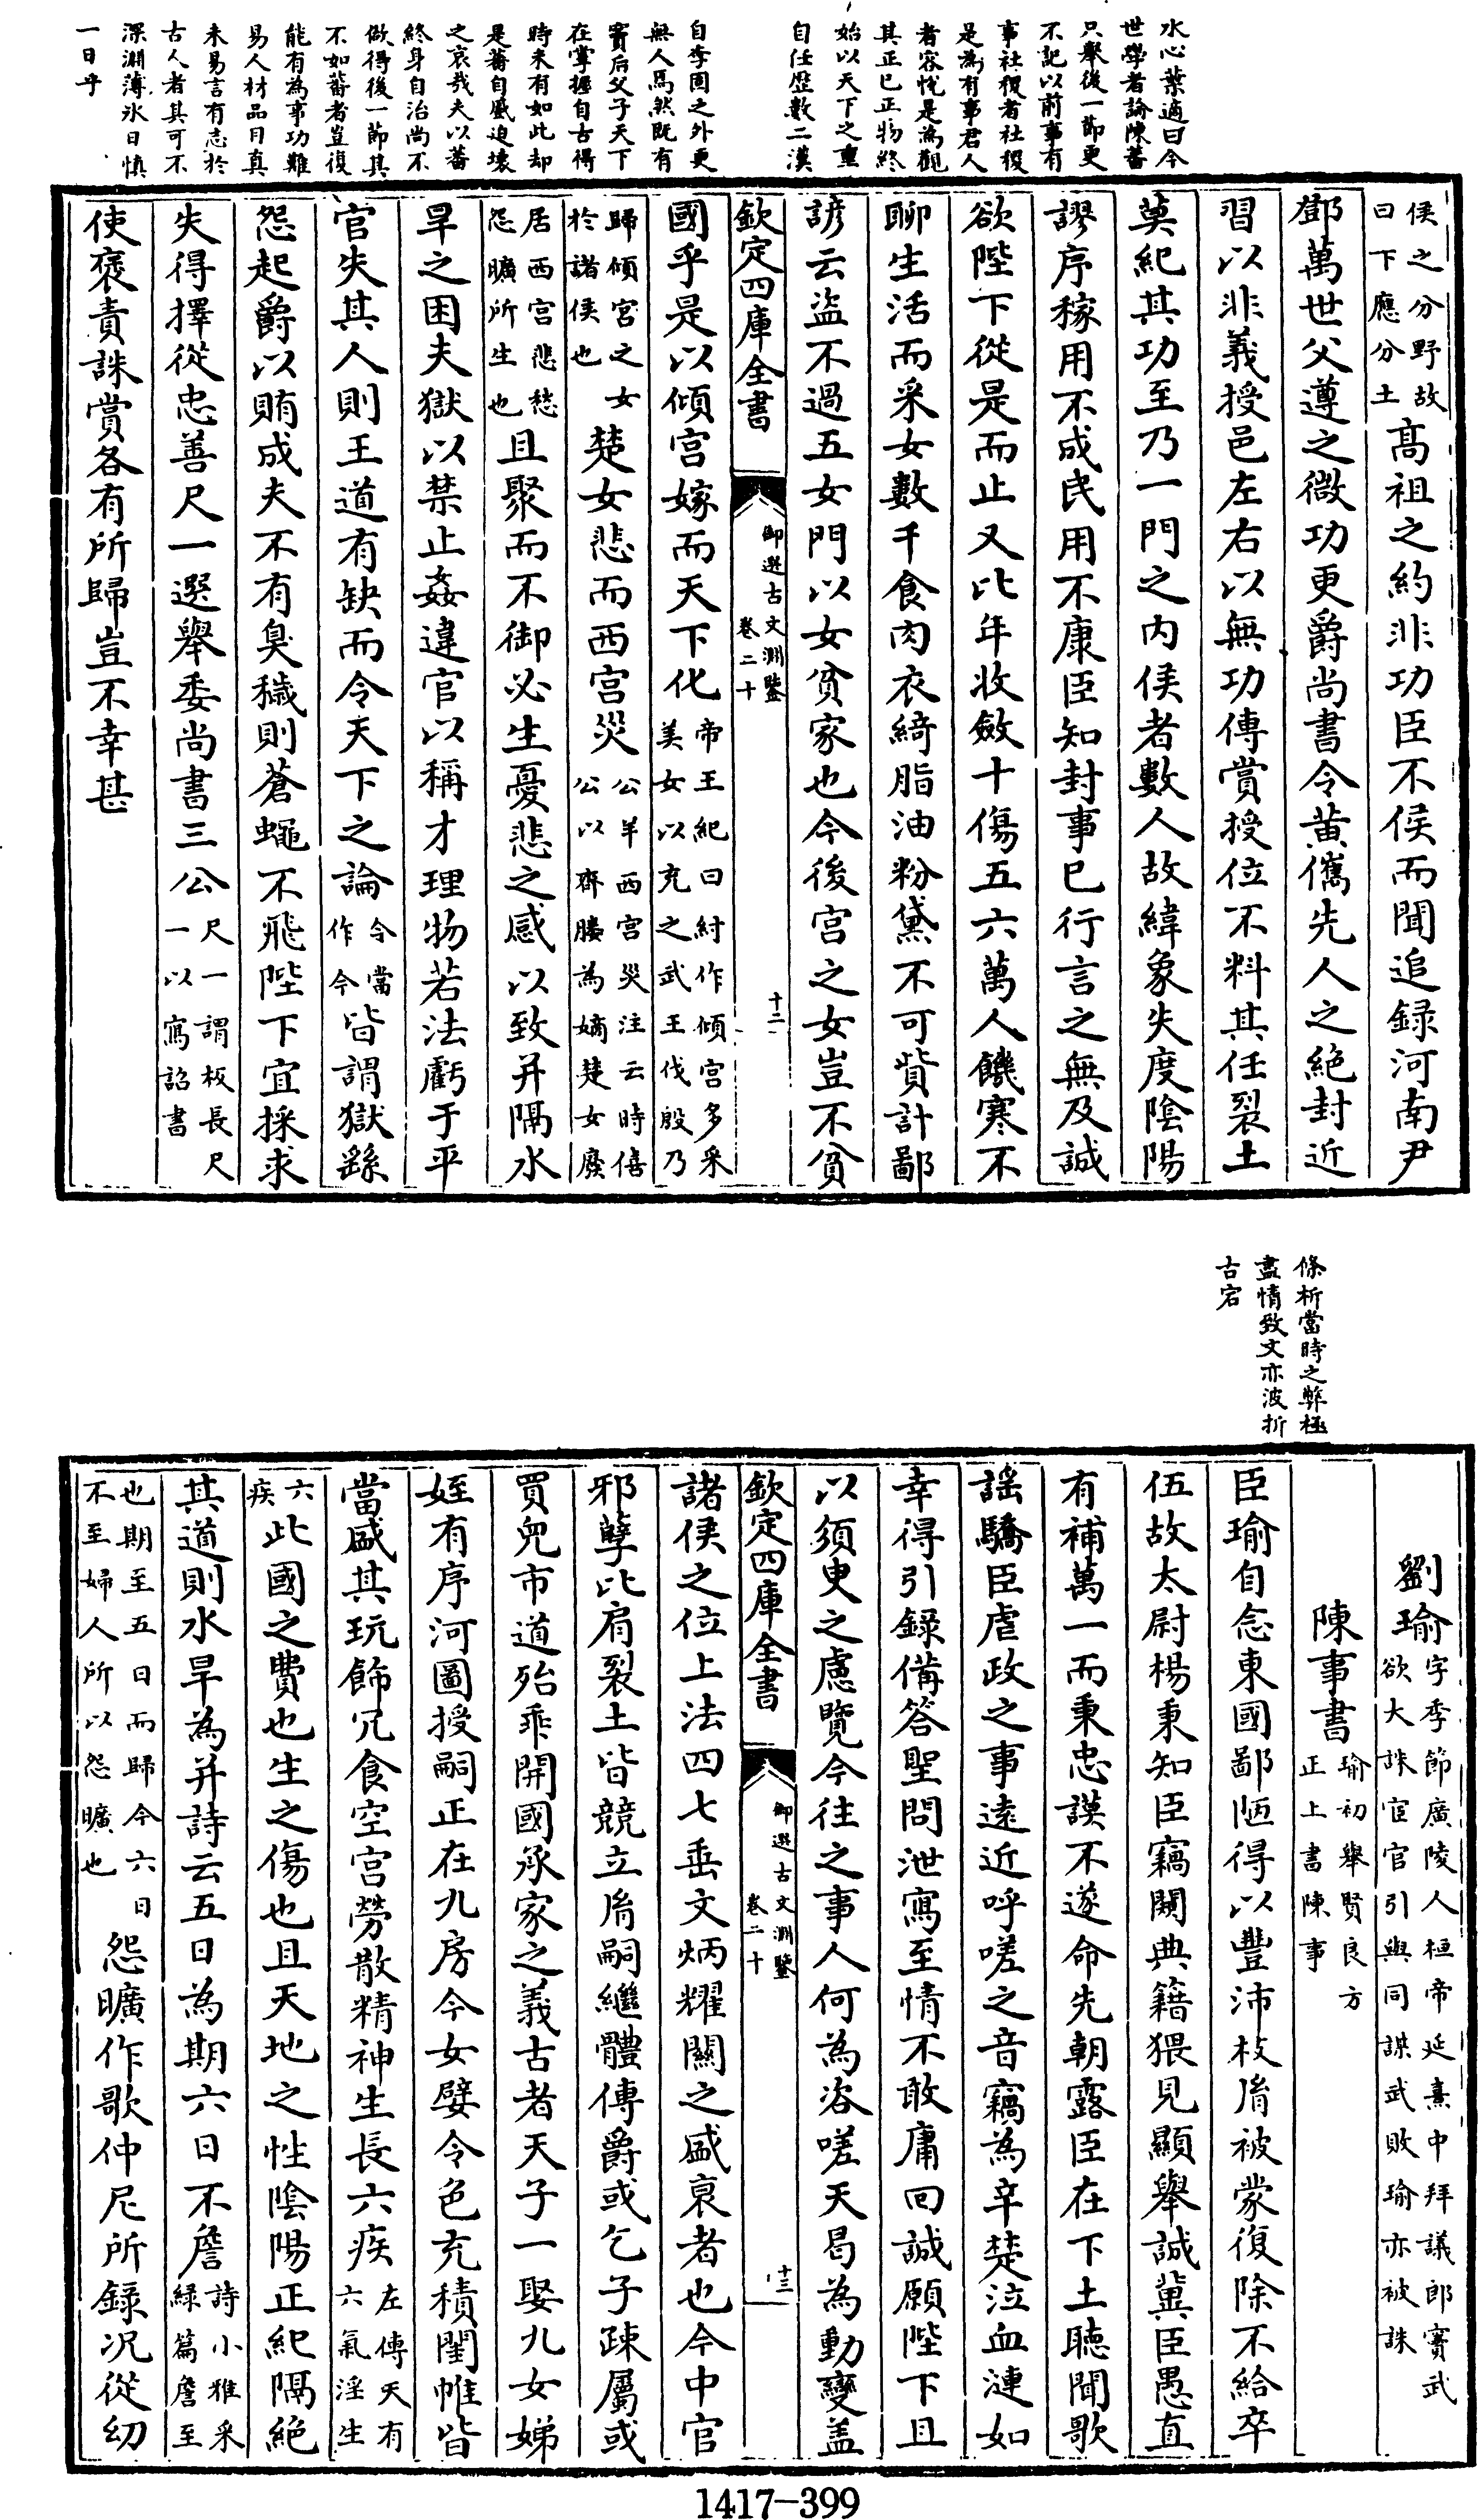 水心葉適曰今
世學者論陳蕃
只舉後一節更
不記以前事有
事社稷者社稷
是為有事君人
者容悅是為觀
其正已正物終
始以天下之重
自任歷數二漢
自李固之外更
無人焉然既有
竇后父子天下
在掌握自古得
時未有如此却
是蕃自蹙迫壞
之哀哉夫以蕃
終身自治尚不
做得後一節其
不如蕃者豈復
能有為事功難
易人材品目真
未易言有志於
古人者其可不
深淵薄氷日慎
一日乎
侯之分野故
曰下應分土
高祖之約非功臣不侯而聞追録河南尹
鄧萬世父遵之微功更爵尚書令黄儁先人之絶封近
習以非義授邑左右以無功傳賞授位不料其任裂土
莫紀其功至乃一門之内侯者數人故緯象失度陰陽
謬序稼用不成民用不康臣知封事已行言之無及誠
欲陛下從是而止又比年收斂十傷五六萬人饑寒不
聊生活而采女數千食肉衣綺脂油粉黛不可貲計鄙
諺云盜不過五女門以女貧家也今後宫之女豈不貧
欽定四庫全書
御選古文淵鑒
卷二十
十二
國乎是以傾宫嫁而天下化
帝王紀曰紂作傾宫多采
美女以充之武王伐殷乃
歸傾宫之女
於諸侯也
楚女悲而西宫災
公羊西宫災注云時僖
公以齊媵為嫡楚女廢
居西宫悲愁
怨曠所生也
且聚而不御必生憂悲之感以致并隔水
旱之困夫獄以禁止姦違官以稱才理物若法虧于平
官失其人則王道有缺而令天下之論
令當
作今
皆謂獄繇
怨起爵以賄成夫不有臭穢則蒼蠅不飛陛下宜採求
失得擇從忠善尺一選舉委尚書三公
尺一謂板長尺
一以寫詔書
使褒責誅賞各有所歸豈不幸甚
條析當時之弊極
盡情致文亦波折
古宕
劉瑜
字季節廣陵人桓帝延熹中拜議郎竇武
欲大誅宦官引與同謀武敗瑜亦被誅
陳事書
瑜初舉賢良方
正上書陳事
臣瑜自念東國鄙陋得以豐沛枝胤被蒙復除不給卒
伍故太尉楊秉知臣竊闚典籍猥見顯舉誠冀臣愚直
有補萬一而秉忠謨不遂命先朝露臣在下土聽聞歌
謡驕臣虐政之事遠近呼嗟之音竊為辛楚泣血漣如
幸得引録備答聖問泄寫至情不敢庸回誠願陛下且
以須臾之慮覽今往之事人何為咨嗟天曷為動變蓋
欽定四庫全書
御選古文淵鑒
卷二十
十三
諸侯之位上法四七垂文炳耀關之盛衰者也今中官
邪孽比肩裂土皆競立胤嗣繼體傳爵或乞子疎屬或
買兒市道殆乖開國承家之義古者天子一娶九女娣
姪有序河圖授嗣正在九房今女嬖令色充積閨帷皆
當盛其玩飾冗食空宫勞散精神生長六疾
左傳天有
六氣淫生
六
疾
此國之費也生之傷也且天地之性陰陽正紀隔絶
其道則水旱為并詩云五日為期六日不詹
詩小雅采
緑篇詹至
也期至五日而歸今六日
不至婦人所以怨曠也
怨曠作歌仲尼所録况從幼
1417-399